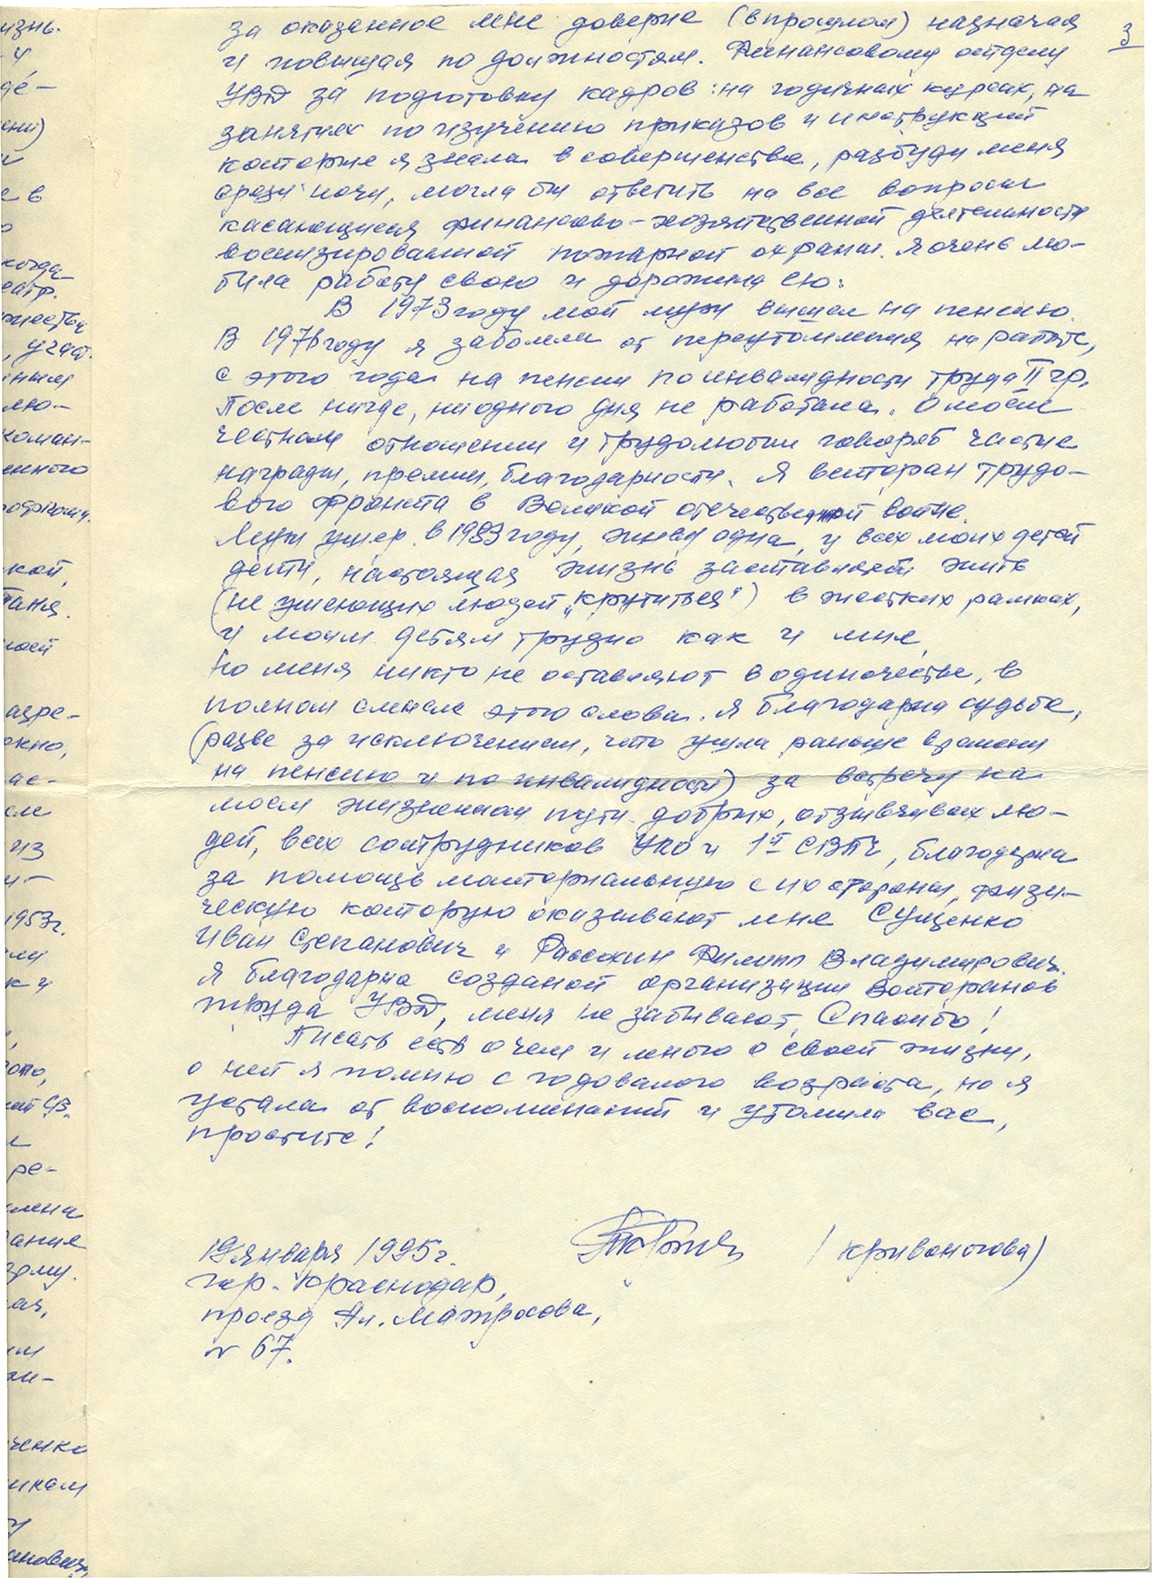 3
за оказанное мне доверие (в прошлом) назначая
и повышая по должностям. Финансовому отделу
УВД за подготовку кадров: на годичных курсах, на
занятиях по изучению приказов и инструкций
которые я знала в совершенстве, разбуди меня
среди ночи, могла бы ответить на все вопросы
касающиеся финансово-хозяйственной деятельности
военизированной пожарной охраны. Я очень лю-
била работу свою и дорожила ею.
В 1973 году мой муж вышел на пенсию.
В 1976 году я заболела от переутомления на работе,
с этого года на пенсии по инвалидности труда II гр.
После нигде, ни одного дня не работала. О моем
честном отношении и трудолюбии говорят частые
награды, премии, благодарности. Я ветеран трудо-
вого фронта в Великой отечественной войне.
Муж умер в 1983 году, живу одна, у всех моих детей
дети, настоящая жизнь заставляет жить
(не умеющих людей „крутиться") в жестких рамках,
и моим детям трудно как и мне,
но меня никто не оставляют в одиночестве, в
полном смысле этого слова. Я благодарна судьбе,
(разве за исключением, что ушла раньше времени
на пенсию и по инвалидности) за встречу на
моем жизненном пути добрых, отзывчивых лю-
дей, всех сотрудников УПО и 1й СВПЧ, благодарна
за помощь материальную с их стороны, физи-
ческую которую оказывают мне Сущенко
Иван Степанович и Рассохин Филипп Владимирович.
Я благодарна созданой организации Ветеранов
труда УВД, меня не забывают, Спасибо!
Писать есть о чем и много о своей жизни,
о ней я помню с годовалого возраста, но я
устала от воспоминаний и утомила вас,
простите!
19 января 1995 г. (Кривоногова)
гор. Краснодар,
проезд Ал. Матросова,
№ 67.